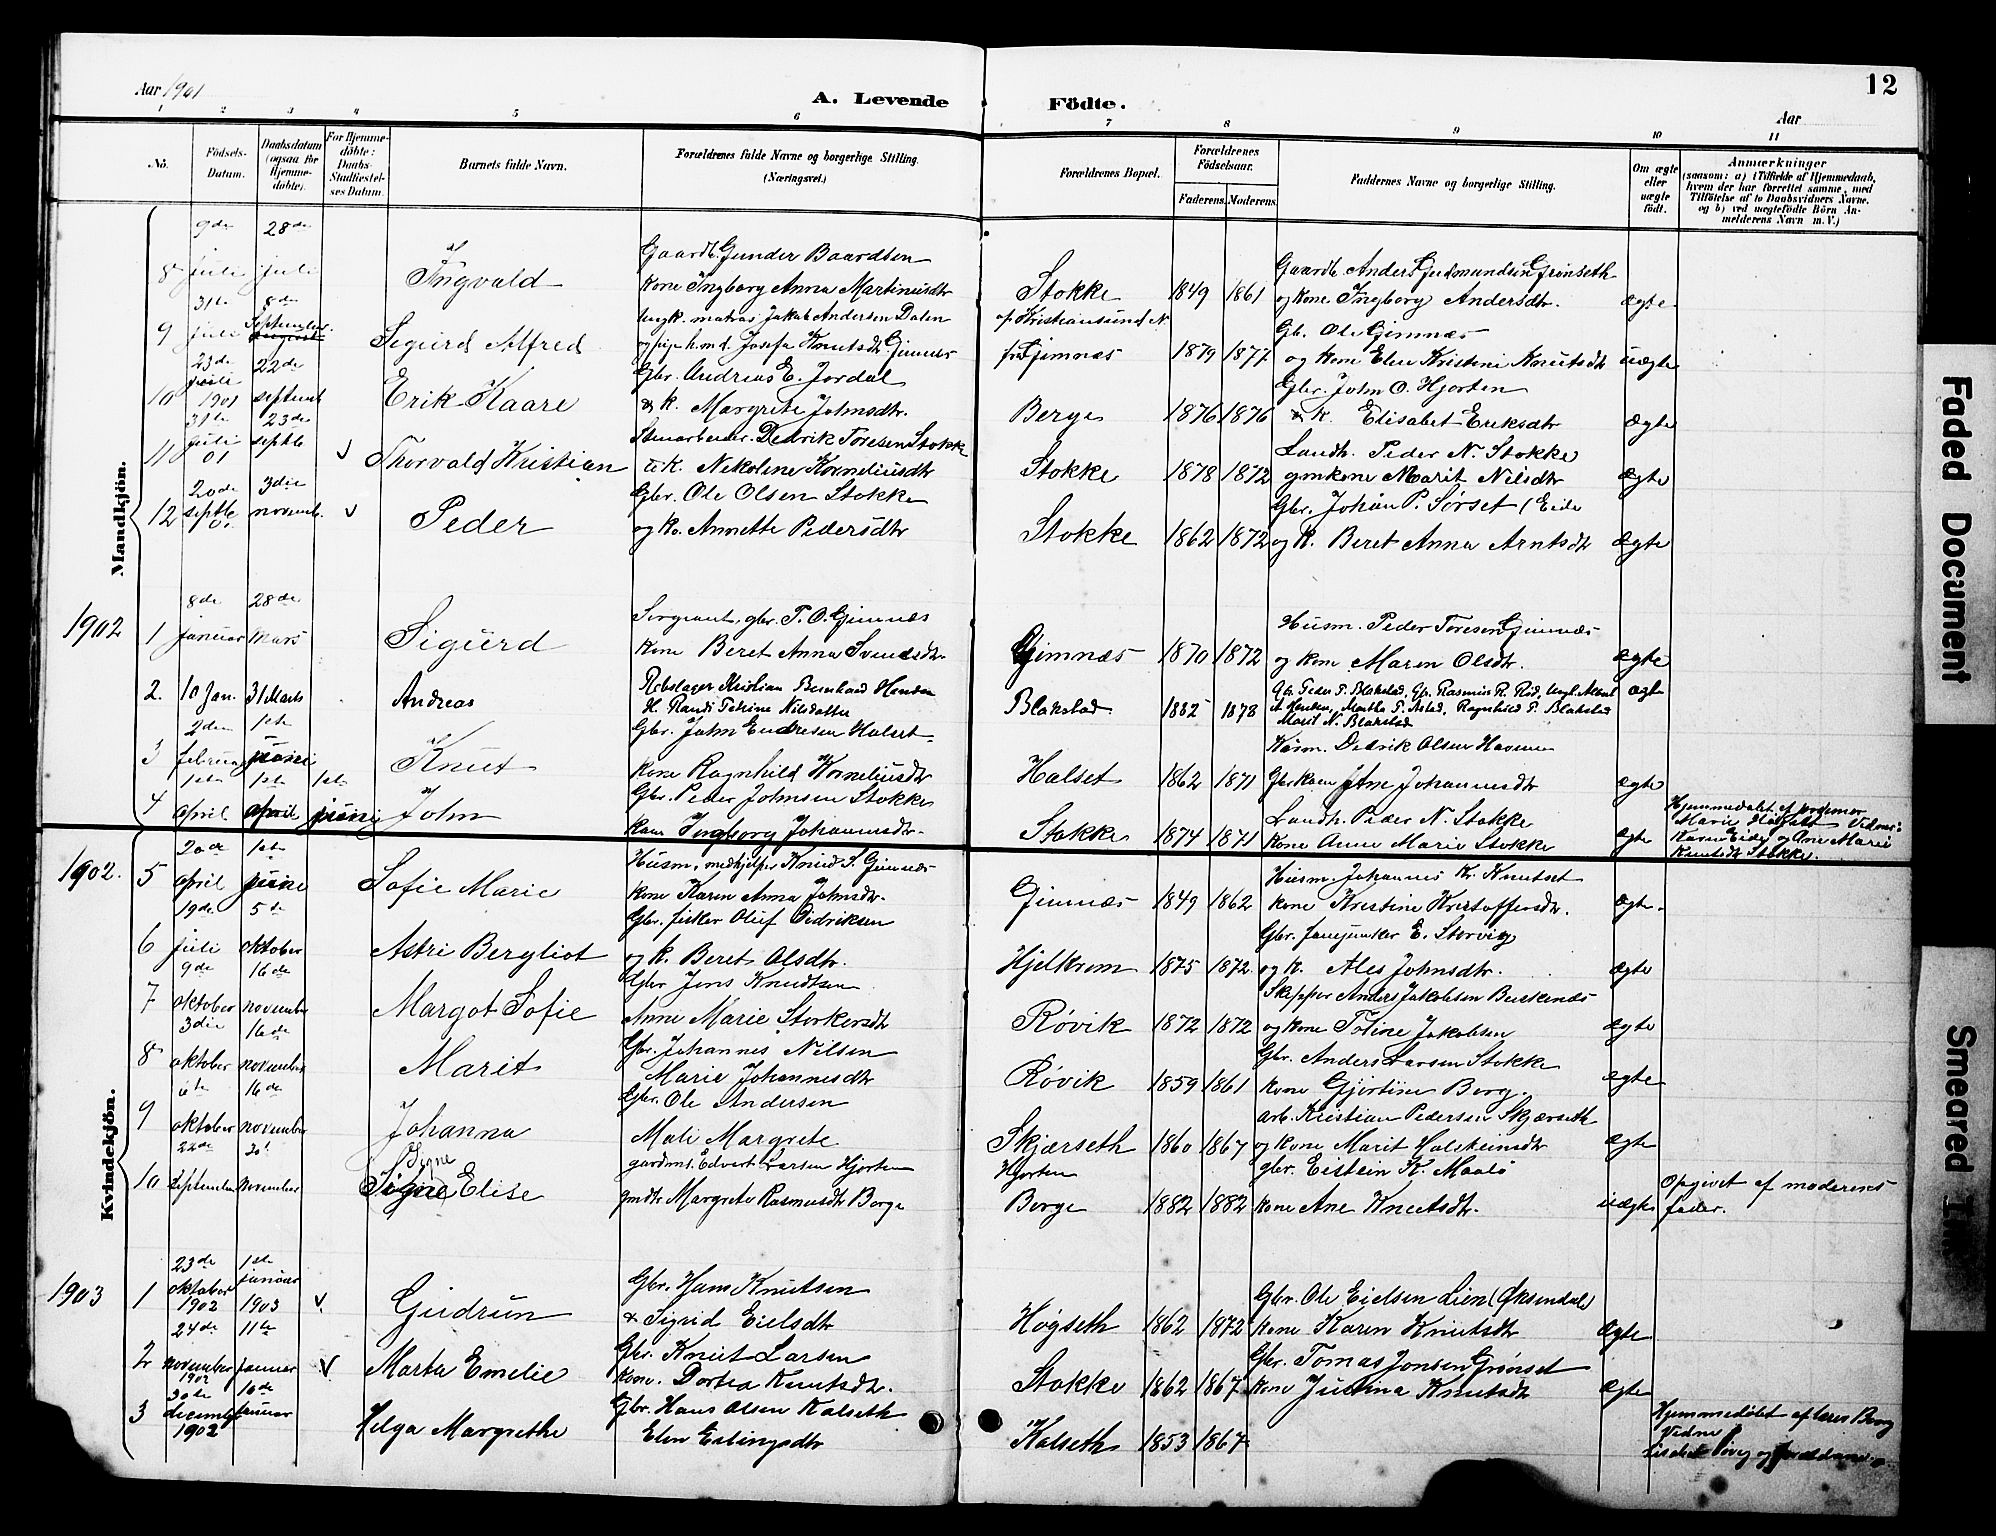 Aar 1901
A. Levende Födte.
12
Aar
1 2 3 4 5 6 7 8 9 10 11
No.
Födsels-Datum.
Daabsdatum (ogsaa for Hjemme-döbte).
For Hjemme-döbte: Daabs-Stadfæstel-ses Datum.
Barnets fulde Navn.
Forældrenes fulde Navne og borgerlige Stilling. (Næringsvei.)
Forældrenes Bopæl.
Forældrenes Födselsaar.
Faderens. Moderens.
Faddernes Navne og borgerlige Stilling.
Om ægte eller uægte födt.
Anmærkninger
(saasom: a) i Tilfælde af Hjemmedaab, hvem der har forrettet samme, med Tilföielse af to Daabsvidners Navne. og b) ved uægtefödte Börn An-melderens Navn m. V.)
Mandkjön.
8 9de juli 28de juli Ingvald Gaardb. Gunder Baardsen
kone Ingborg Anna Martinusdtr Stokke 1849 1861 Gaardb. Anders Gudmundsen Grønseth
og kone Ingborg Andersdtr. ægte
9 31te juli 8de September Sigurd Alfred ungk. matros Jakob Andersen Dalen
og pige Josefa Knutsdtr Gimnæs af Kristiansund N. fra Gimnæs 1879 1877 Gb. Ole Gimnæs
og kone Elen Kristine Knutsdtr uægte
10 23de juli 1901 22de septemb Erik Kaare Gbr. Andreas E. Jordal
& k. Margrete Johnsdtr. Berge 1876 1876 Gbr. John O. Hjorten
& k. Elisabet Eriksdtr ægte
11 31te juli 01 23de septb Thorvald Kristian Stenarbeider. Dedrik Toresen Stokke
& k. Nekoline Korneliusdtr Stokke 1878 1872 Landh. Peder N. Stokke
gmkone Marit Nilsdtr ægte
12 20de septb 01 3die novemb. Peder Gbr. Ole Olsen Stokke
og Ko. Annette Pedersdtr Stokke 1862 1872 Gbr. Johan P. Sørset (Eide
og K. Beret Anna Arntsdtr ægte
1902
1 8de januar 28de Mars Sigurd Sergeant, gbr. T. O. Gimnæs
kone Beret Anna Svendsdtr. Gimnæs 1870 1872 Husm. Peder Toresen Gimnæs
og kone Maren Olsdtr. ægte
2. 10 Jan. 31 Marts Andreas Rebslager Kristian Bernhard Hansen
H. Randi Petrine Nilsdatter Blakstad 1882 1878 Gb. Peder P. Blakstad, Gb. Rasmus R. Rød, Ungk.
Martha P. Astad, Ragnhild P. Blakstad
Marit N. Blakstad ægte
3 2den februar 1ste juni Knut Gbr. John Endresen Halset
kone Ragnhild Korneliusdtr Halset 1862 1871 Husm. Didrik Olsen Havnen
Gbrkone Ane Johannesdtr ægte
4 1ste april 1ste april 1ste juni John Gbr. Peder Johnsen Stokke
kone Ingborg Johannesdtr. Stokke 1874 1871 Landh. Peder N. Stokke
kone Anne Marie Stokke ægte Hjemmedøbt af jordemor
Marie Vidner:
Karen Eide og Ane Marie
Knutsdtr Stokke.
Kvindekjön.
1902.
5 20de april 1ste juni Sofie Marie Husm., medhjelper Knud S. Gimnæs
kone Karen Anna Johnsdtr. Gimnæs 1849 1862 Husm. Johannes Kr. Knutset
kone Kristine Kristoffersdtr. ægte.
6 19de juli 5te oktober Astri Bergliot Gbr. fisker Oluf Didriksen
og K. Beret Olsdtr. Hjelkrem 1875 1872. Gbr. E. Storvig
og k. Ales Johnsdtr. ægte
7 9de oktober 16de november Margot Sofie Gbr. Jens Knudtsen
Anne Marie Storkersdtr Røvik 1872 1872 Skipper Anders Jakobsen
og kone Toline Jakobsen ægte
8 3die oktober 16de november Marit Gbr. Johannes Nilsen
Marie Johannesdtr Røvik 1859 1861 Gbr. Anders Larsen Stokke
kone Gjertine Berg. ægte
9 6te oktober 16de november Johanna Gbr. Ole Andersen
Mali Margrete Skjærseth 1860 1867 arb. Kristian Pedersen Skjærseth
og kone Marit Halsteinsdtr ægte
10 22de september 30te november Signe Signe Elise gardms. Edvart Larsen Hjorten
gmdtr Margrete Rasmusdtr Berge Hjorten Berge 1882 1882 gbr. Eistein K. Maalø
kone Ane Knutsdtr. uægte Opgivet af moderens
fader.
1903
1 23de oktober 1902 1ste januar 1903 Gudrun Gbr. Hans Knutsen
& Sigrid Eielsdtr Høgseth 1862 1872 Gbr. Ole Eielsen Lien (Øksendal)
kone Karen Knutsdtr ægte
2 24de november 1902 11te januar Marta Emelie Gbr. Knut Larsen
kone. Dortea Knutsdtr. Stokke 1862 1867 Gbr. Tomas Jonsen Grønset
kone Justina Knutsdtr ægte
3 30te december 1902 16de januar Helga Margrethe Gbr. Hans Olsen Kalseth
Elen Erlingsdtr Kalseth 1853 1867 Hjemmedøbt af lærer Berg
Vidner
Faded Document
Smeared Ink